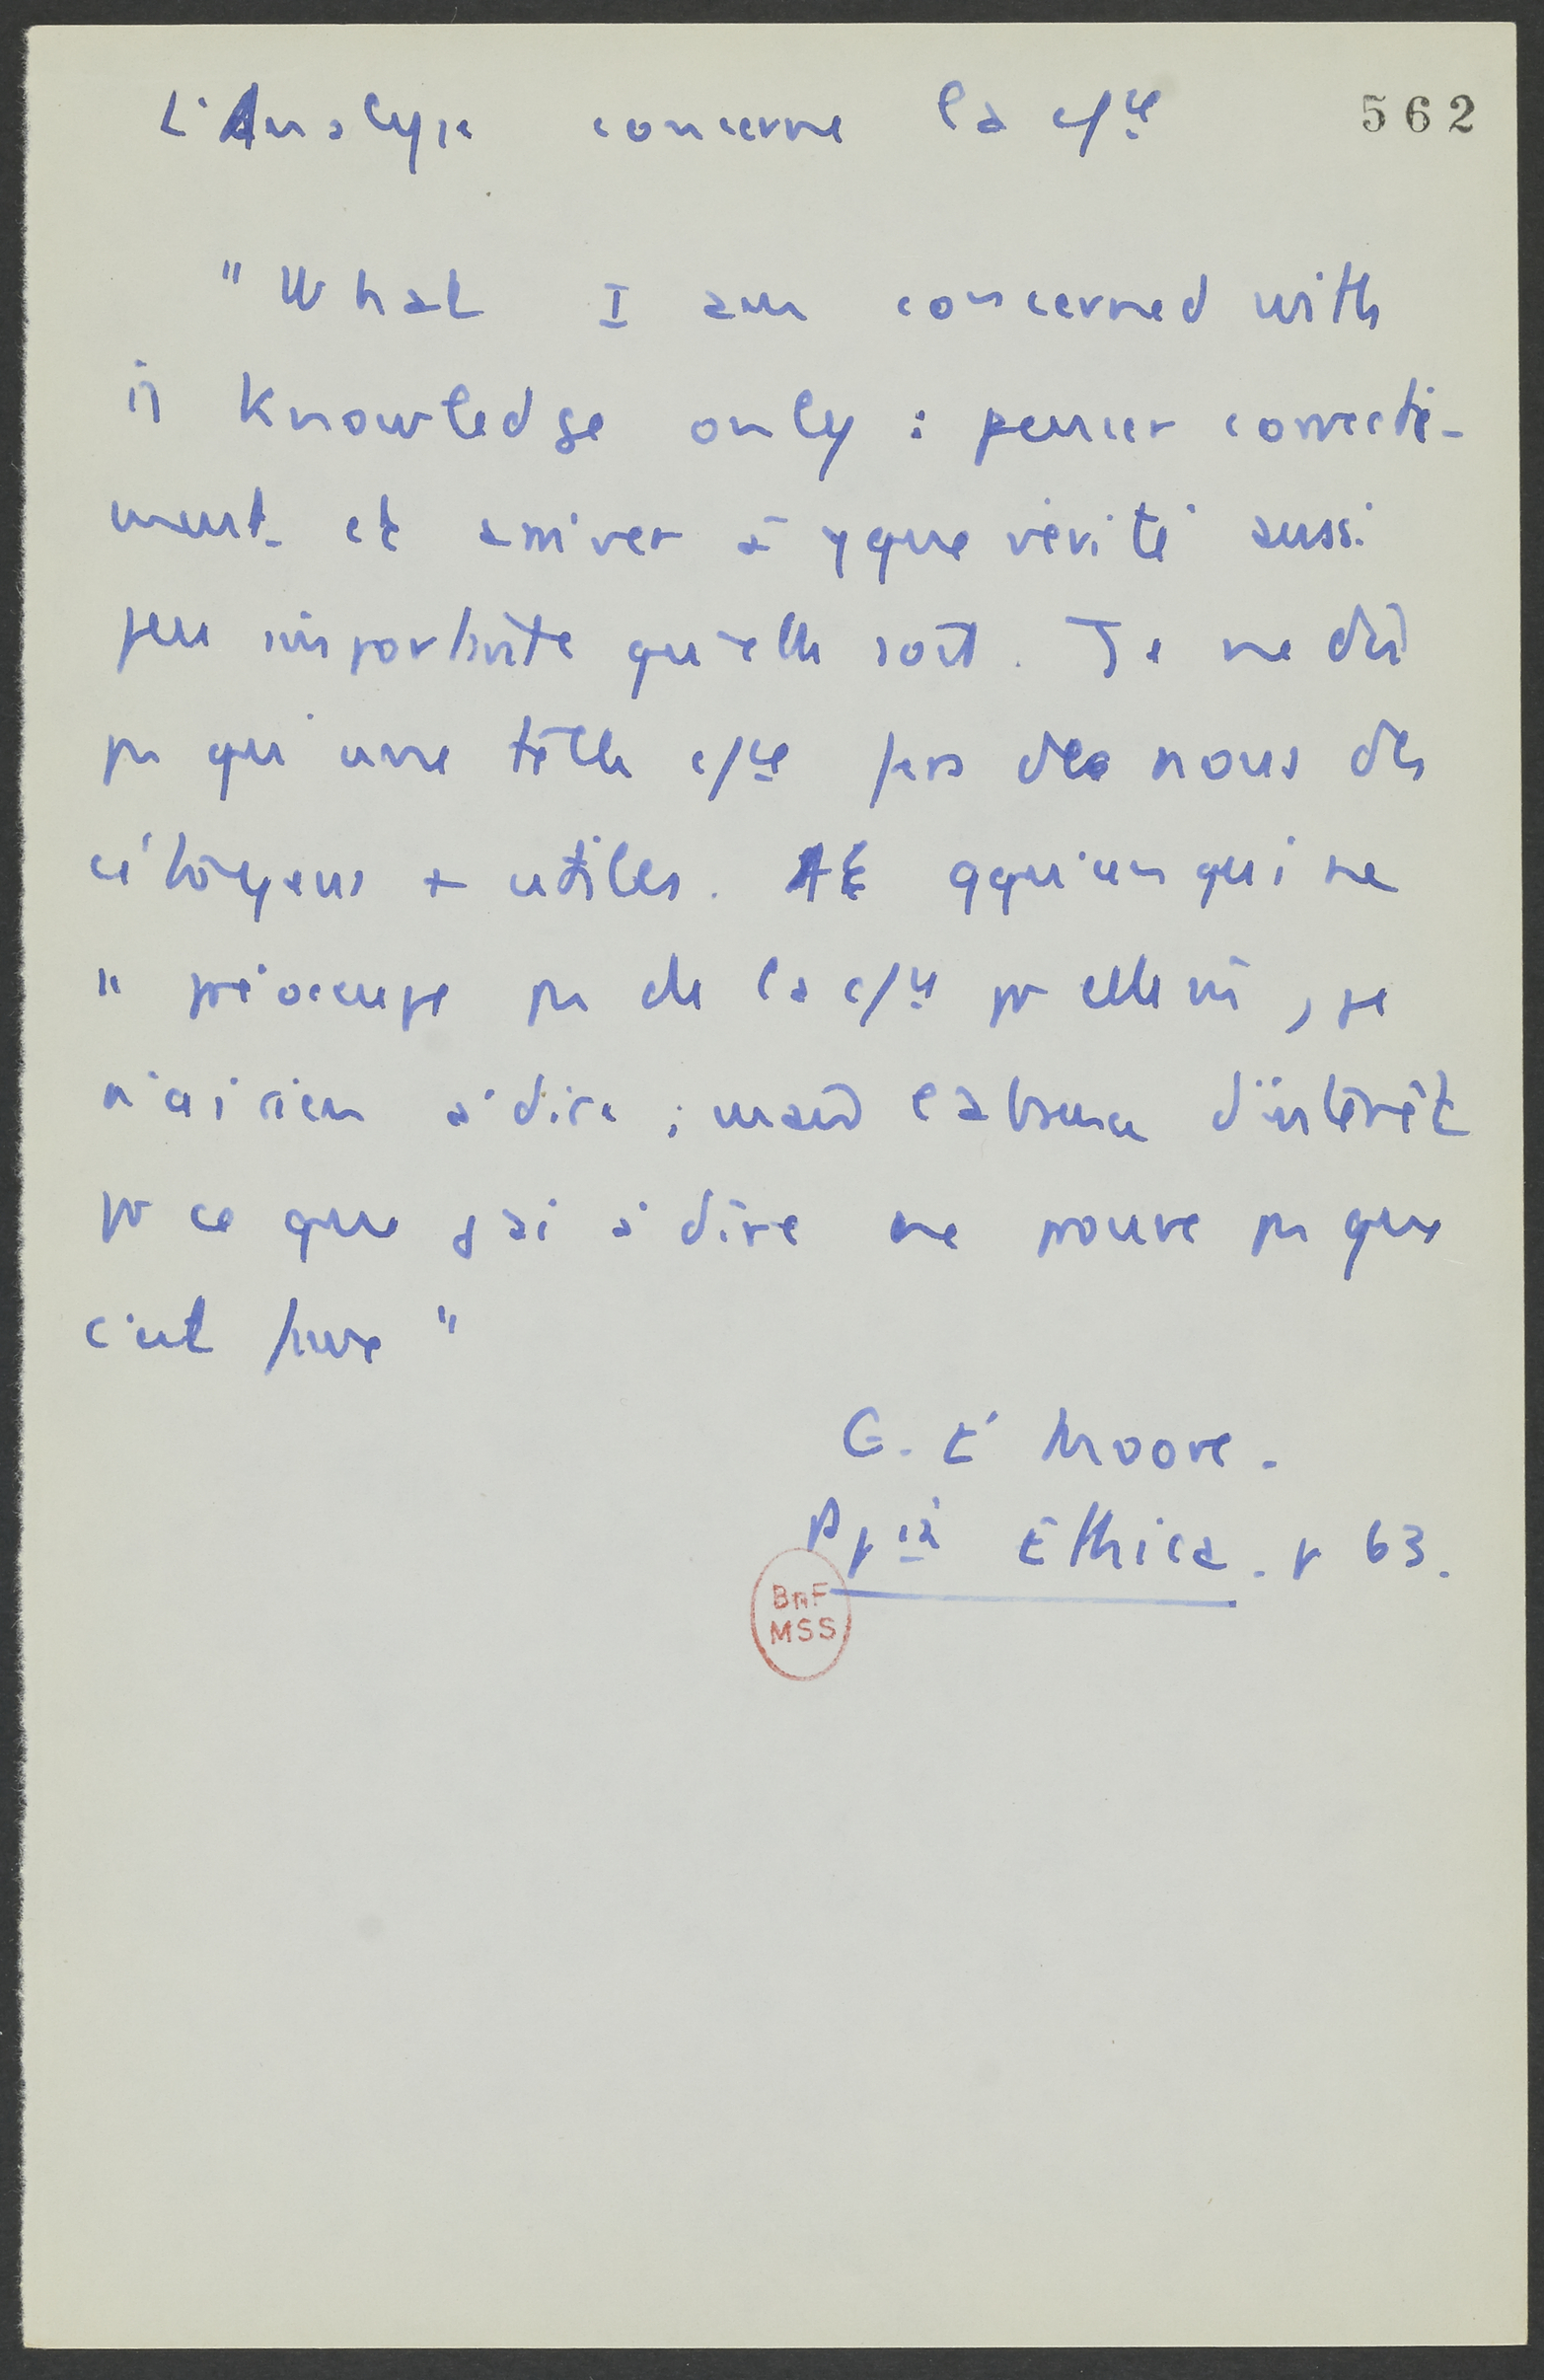 L'Analyse concerne la c/ce
562
"What I am concerned with
is knowledge only : penser correcte-
ment et arriver à qque vérité aussi
peu importante qu'elle soit. Je ne dis
pas qu'une telle c/ce fera de nous des
citoyens + utiles. À qqu'un qui ne
" préoccupe pas de la c/ce pr elle m̂, je
n'ai rien à dire ; mais l'absence d'intérêt
pr ce que j'ai à dire ne prouve pas que
c'est faux "
G. E Moore.
Ppia Ethica. p 63.
BnF
MSS